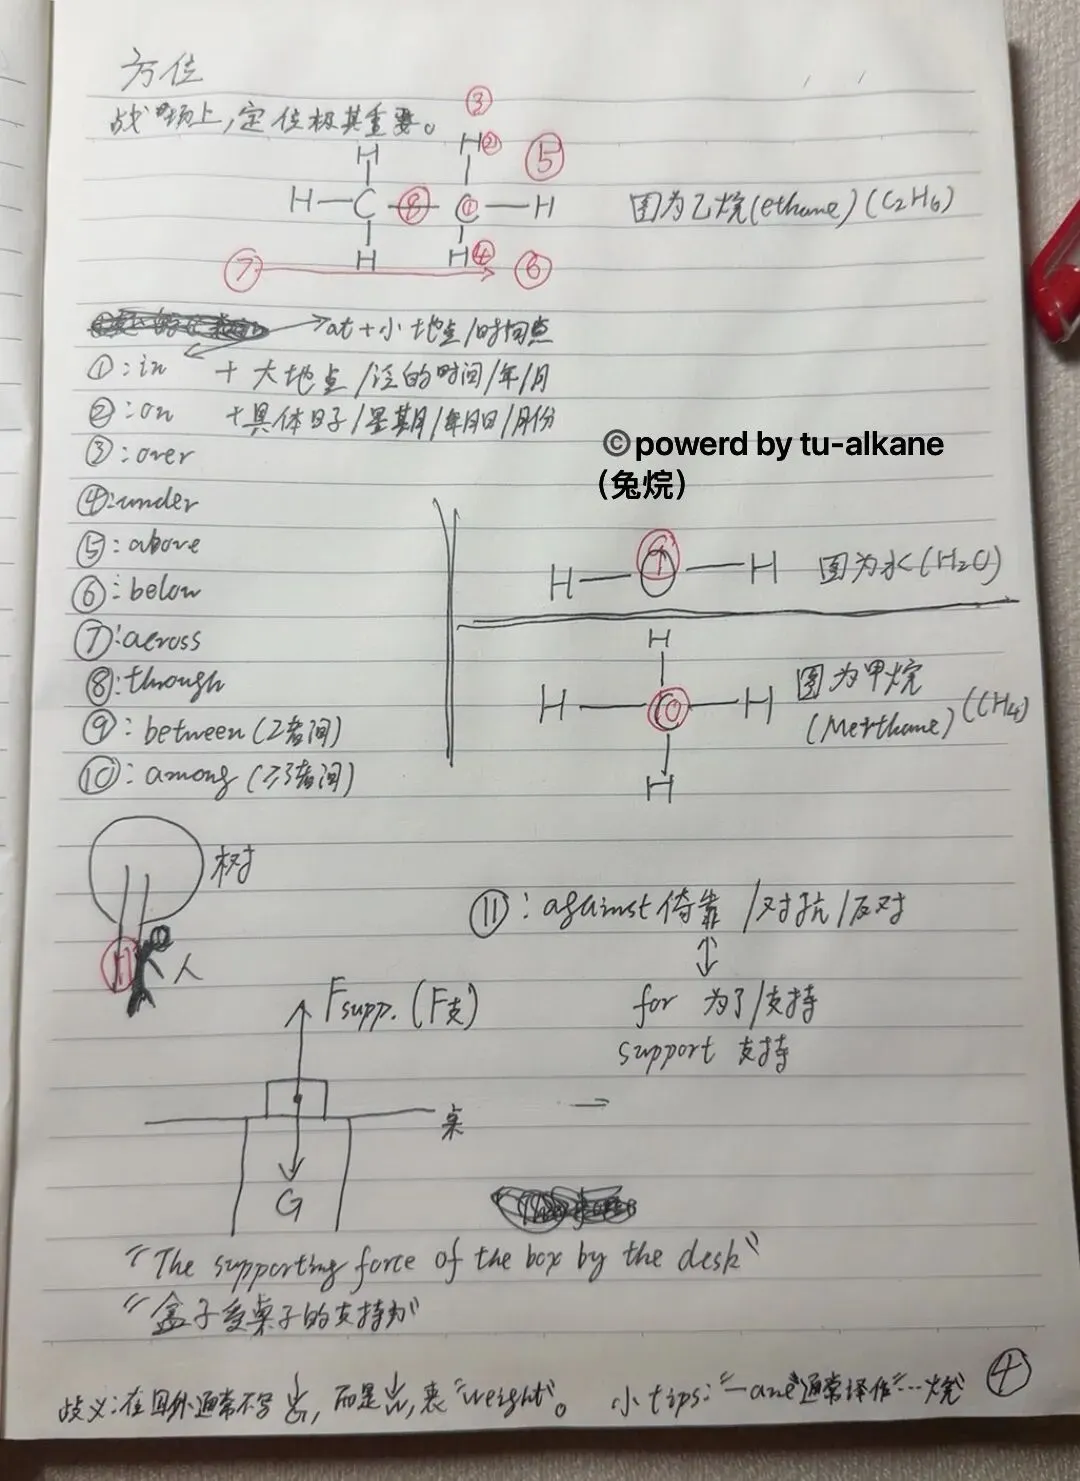 方位
战场上，定位极其重要。
③
H H② ⑤
H—C—⑧—①—H 图为乙烷(ethane)(C2H6)
H H④
⑦ ⑥
at+小地点/时间点
①:in +大地点/泛的时间/年/月
②:on +具体日子/星期/年月日/月份
③:over
©powerd by tu-alkane
(兔烷)
④:under
⑤:above
⑥:below
⑦:across
⑧:through
⑨:between(2者间)
⑩:among(≥3者间)
H— —H 图为水(H2O)
H
H—⑩—H 图为甲烷
(Merthane)(CH4)
H
树
人
⑪:against倚靠/对抗/反对
for 为了/支持
support 支持
Fsupp.(F支)
桌
G
"The supporting force of the box by the desk"
"盒子受桌子的支持力"
歧义:在国外通常不写G,而是W,表"weight"。
小tips:"—ane"通常译作"…烷"
④